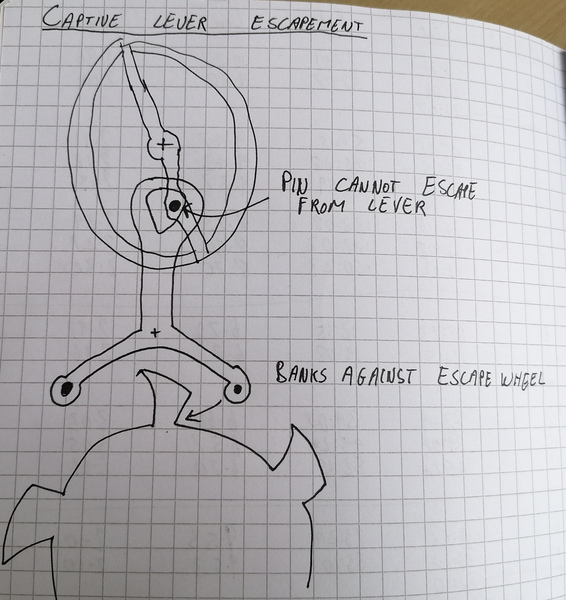 CAPTIVE LEVER ESCAPEMENT
PIN CANNOT ESCAPE
FROM LEVER
BANKS AGAINST ESCAPE WHEEL